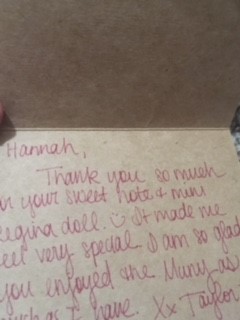 Hannah,
Thank you so much
or your sweet note & mini
egina doll. ☺ It made me
eel very special. I am so glad
you enjoyed the Muny as
uch as I have. Xx Taylor